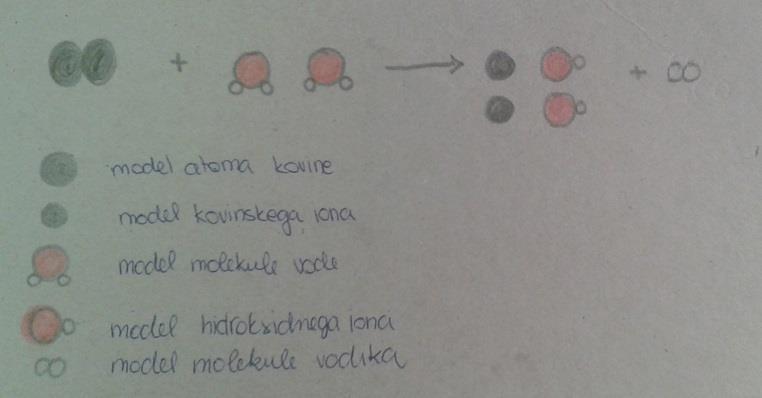 + → +
model atoma kovine
model kovinskega iona
model molekule vode
model hidroksidnega iona
model molekule vodika